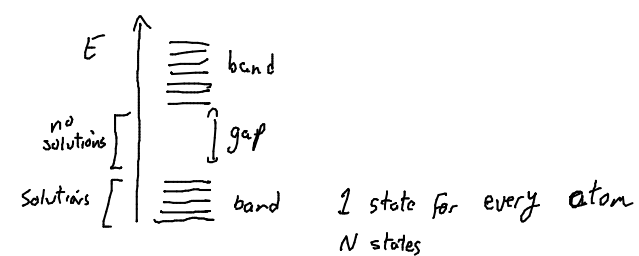 E
band
no
solutions
gap
Solutions
band
1 state for every atom
N states